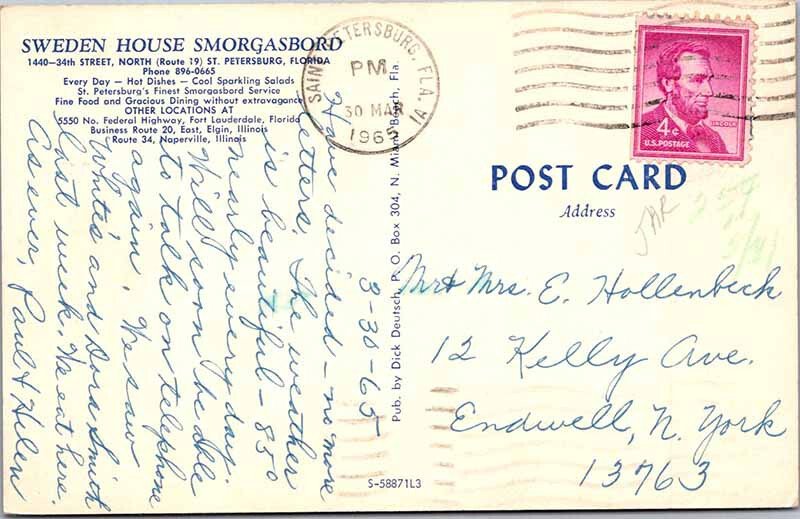 SWEDEN HOUSE SMORGASBORD
1440—34th STREET, NORTH (Route 19) ST. PETERSBURG, FLORIDA
Phone 896-0665
Every Day — Hot Dishes — Cool Sparkling Salads
St. Petersburg's Finest Smorgasbord Service
Fine Food and Gracious Dining without extravagance
OTHER LOCATIONS AT
5550 No. Federal Highway, Fort Lauderdale, Florida
Business Route 20, East, Elgin, Illinois
Route 34, Naperville, Illinois
3-30-65
Have decided - no more
letters. The weather
is beautiful - 85°
nearly every day.
Will soon be able
to talk on telephone
again. We saw
White's and Dora Smith
last week. We eat here.
As ever, Paul & Helen
Pub. by Dick Deutsch, P. O. Box 304, N. Miami Beach, Fla.
S-58871L3
SAINT PETERSBURG, FLA.
PM
30 MAR
1965
LINCOLN
4¢
U.S. POSTAGE
POST CARD
Address
JAR
Mr & Mrs. E. Hollenbeck
12 Kelly Ave.
Endwell, N. York
13763